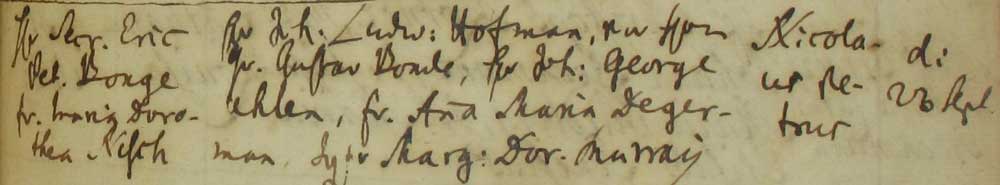 Hr Secr. Eric
Pet. Bonge
fr. Maria Doro-
thea Nisch
Hr Joh. Ludw: Hofman,
Gr. Gustav Bonde, Hr Joh: George
ehlen, fr. Aña Maria Deger-
man Marg: Dor. Murray
Nicola-
us Pe-
trus
d:
23 Sept.